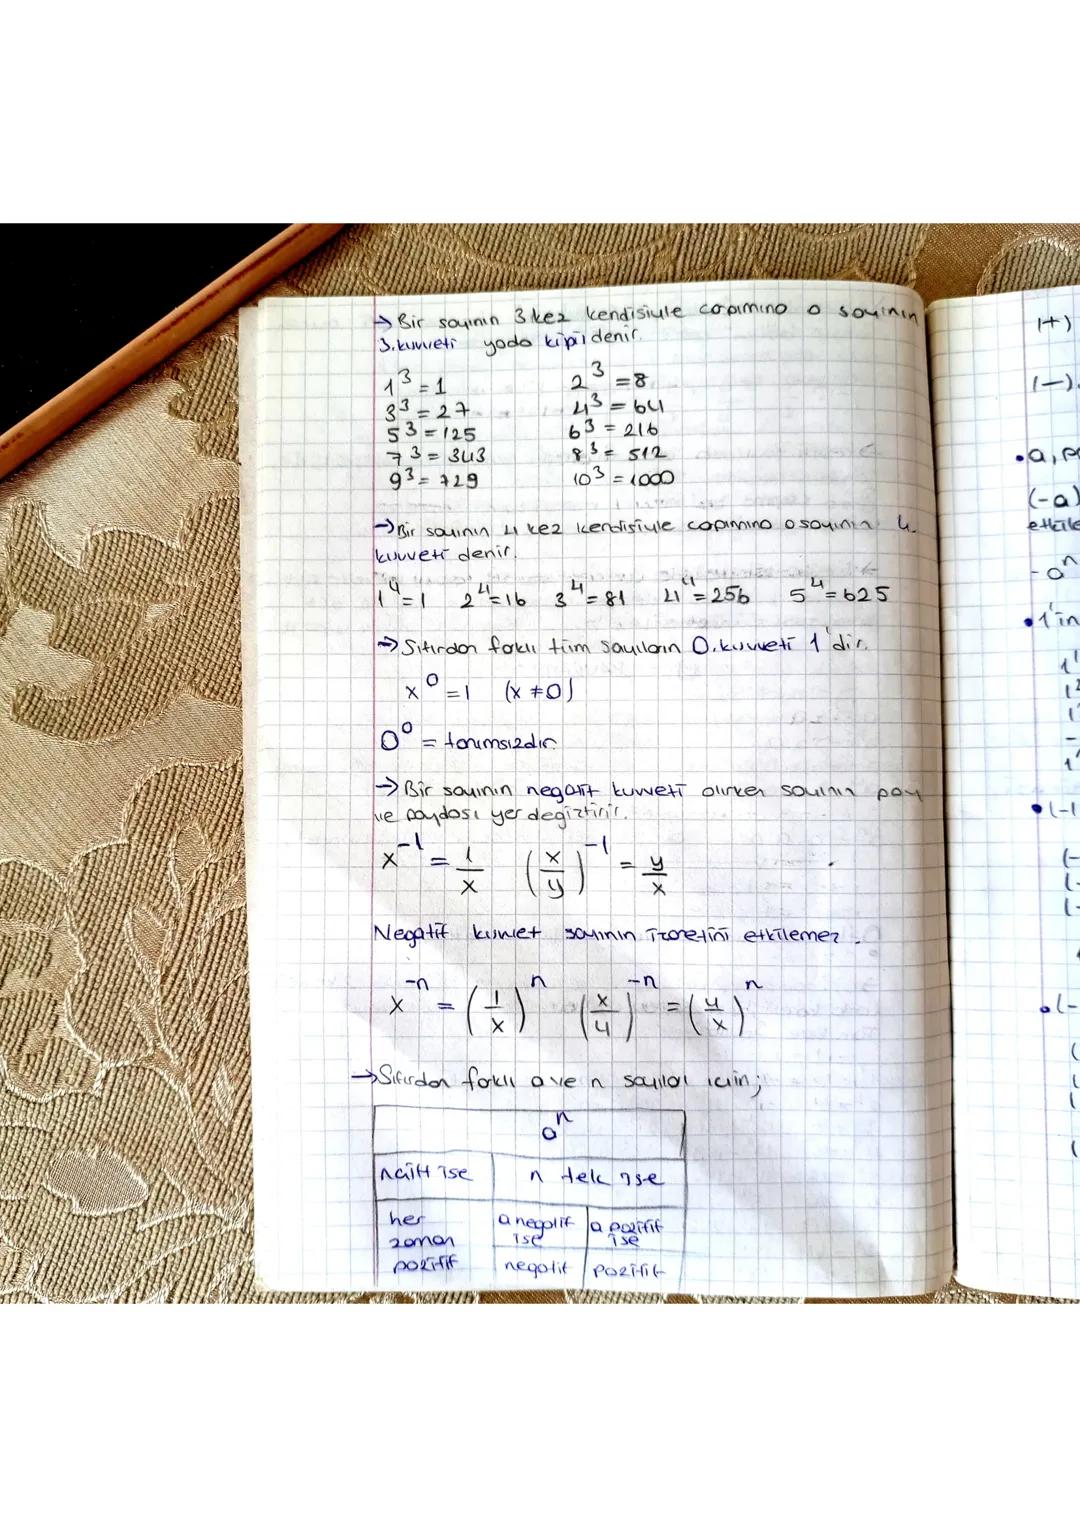 → Bir sayının 3 kez kendisiyle çarpımına o sayının
3. kuvveti yada kipi denir.
1³ = 1 2³ = 8
3³ = 27 4³ = 64
5³ = 125 6³ = 216
7³ = 343 8³ = 512
9³ = 729 10³ = 1000
→ Bir sayının 4 kez kendisiyle çarpımına o sayının 4.
kuvveti denir.
1⁴ = 1 2⁴ = 16 3⁴ = 81 4⁴ = 256 5⁴ = 625
→ Sıfırdan farklı tüm sayıların 0. kuvveti 1'dir.
x⁰ = 1 (x ≠ 0)
0⁰ = tanımsızdır.
→ Bir sayının negatif kuvveti alırken sayının pay
ve paydası yer değiştirir.
x⁻¹ = 1/x (x/y)⁻¹ = y/x
Negatif kuvvet sayının işaretini etkilemez.
x⁻ⁿ = (1/x)ⁿ (x/y)⁻ⁿ = (y/x)ⁿ
→ Sıfırdan farklı a ve n sayıları için;
aⁿ
n çift ise n tek ise
her zaman pozitif
a negatif ise a pozitif ise
negatif pozitif
(+)
(-)
• a, p
(-a)
etkile
-aⁿ
• 1'in
• (-1
• (-